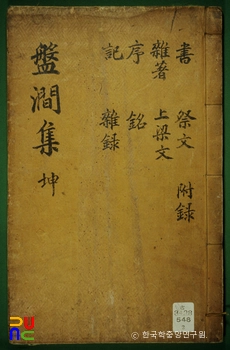 盤澗集 坤
書 祭文 附録
雜著 上梁文
序 銘
記 雜録
648
© 한국학중앙연구원